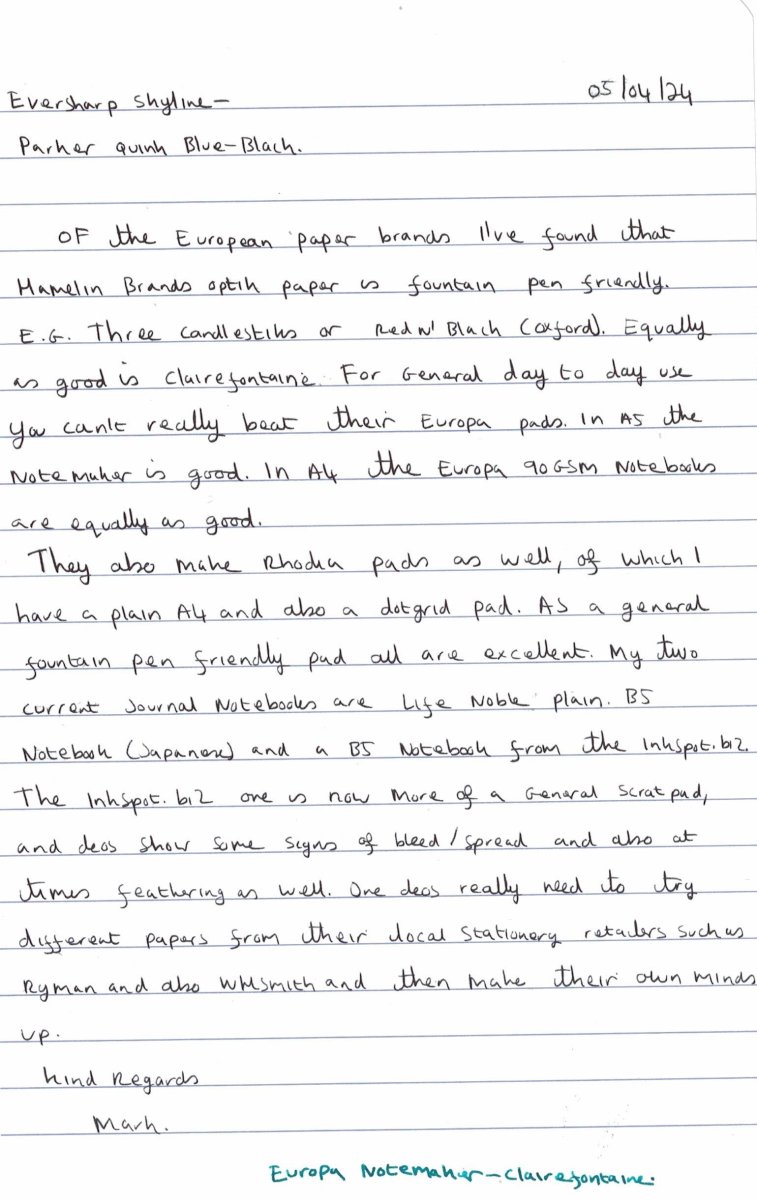 Eversharp Skyline- 05/04/24
Parker quink Blue-Black.
OF the European paper brands I've found that
Hamelin Brands optik paper is fountain pen friendly.
E.G. Three candlestiks or Red N' Black (oxford). Equally
as good is Clairefontaine. For General day to day use
you can't really beat their Europa pads. In A5 the
Notemaker is good. In A4 the Europa 90GSM Notebooks
are equally as good.
They also make Rhodia pads as well, of which I
have a plain A4 and also a dotgrid pad. As a general
fountain pen friendly pad all are excellent. My two
current Journal Notebooks are Life Noble plain. B5
Notebook (Japanese) and a B5 Notebook from the Inkspot.biz.
The Inkspot.biz one is now more of a General scrat pad,
and deos show some signs of bleed/spread and also at
times feathering as well. One deos really need to try
different papers from their local stationery retailers such as
Ryman and also WHSmith and then make their own minds
up.
Kind Regards
Mark.
Europa Notemaker-Clairefontaine.